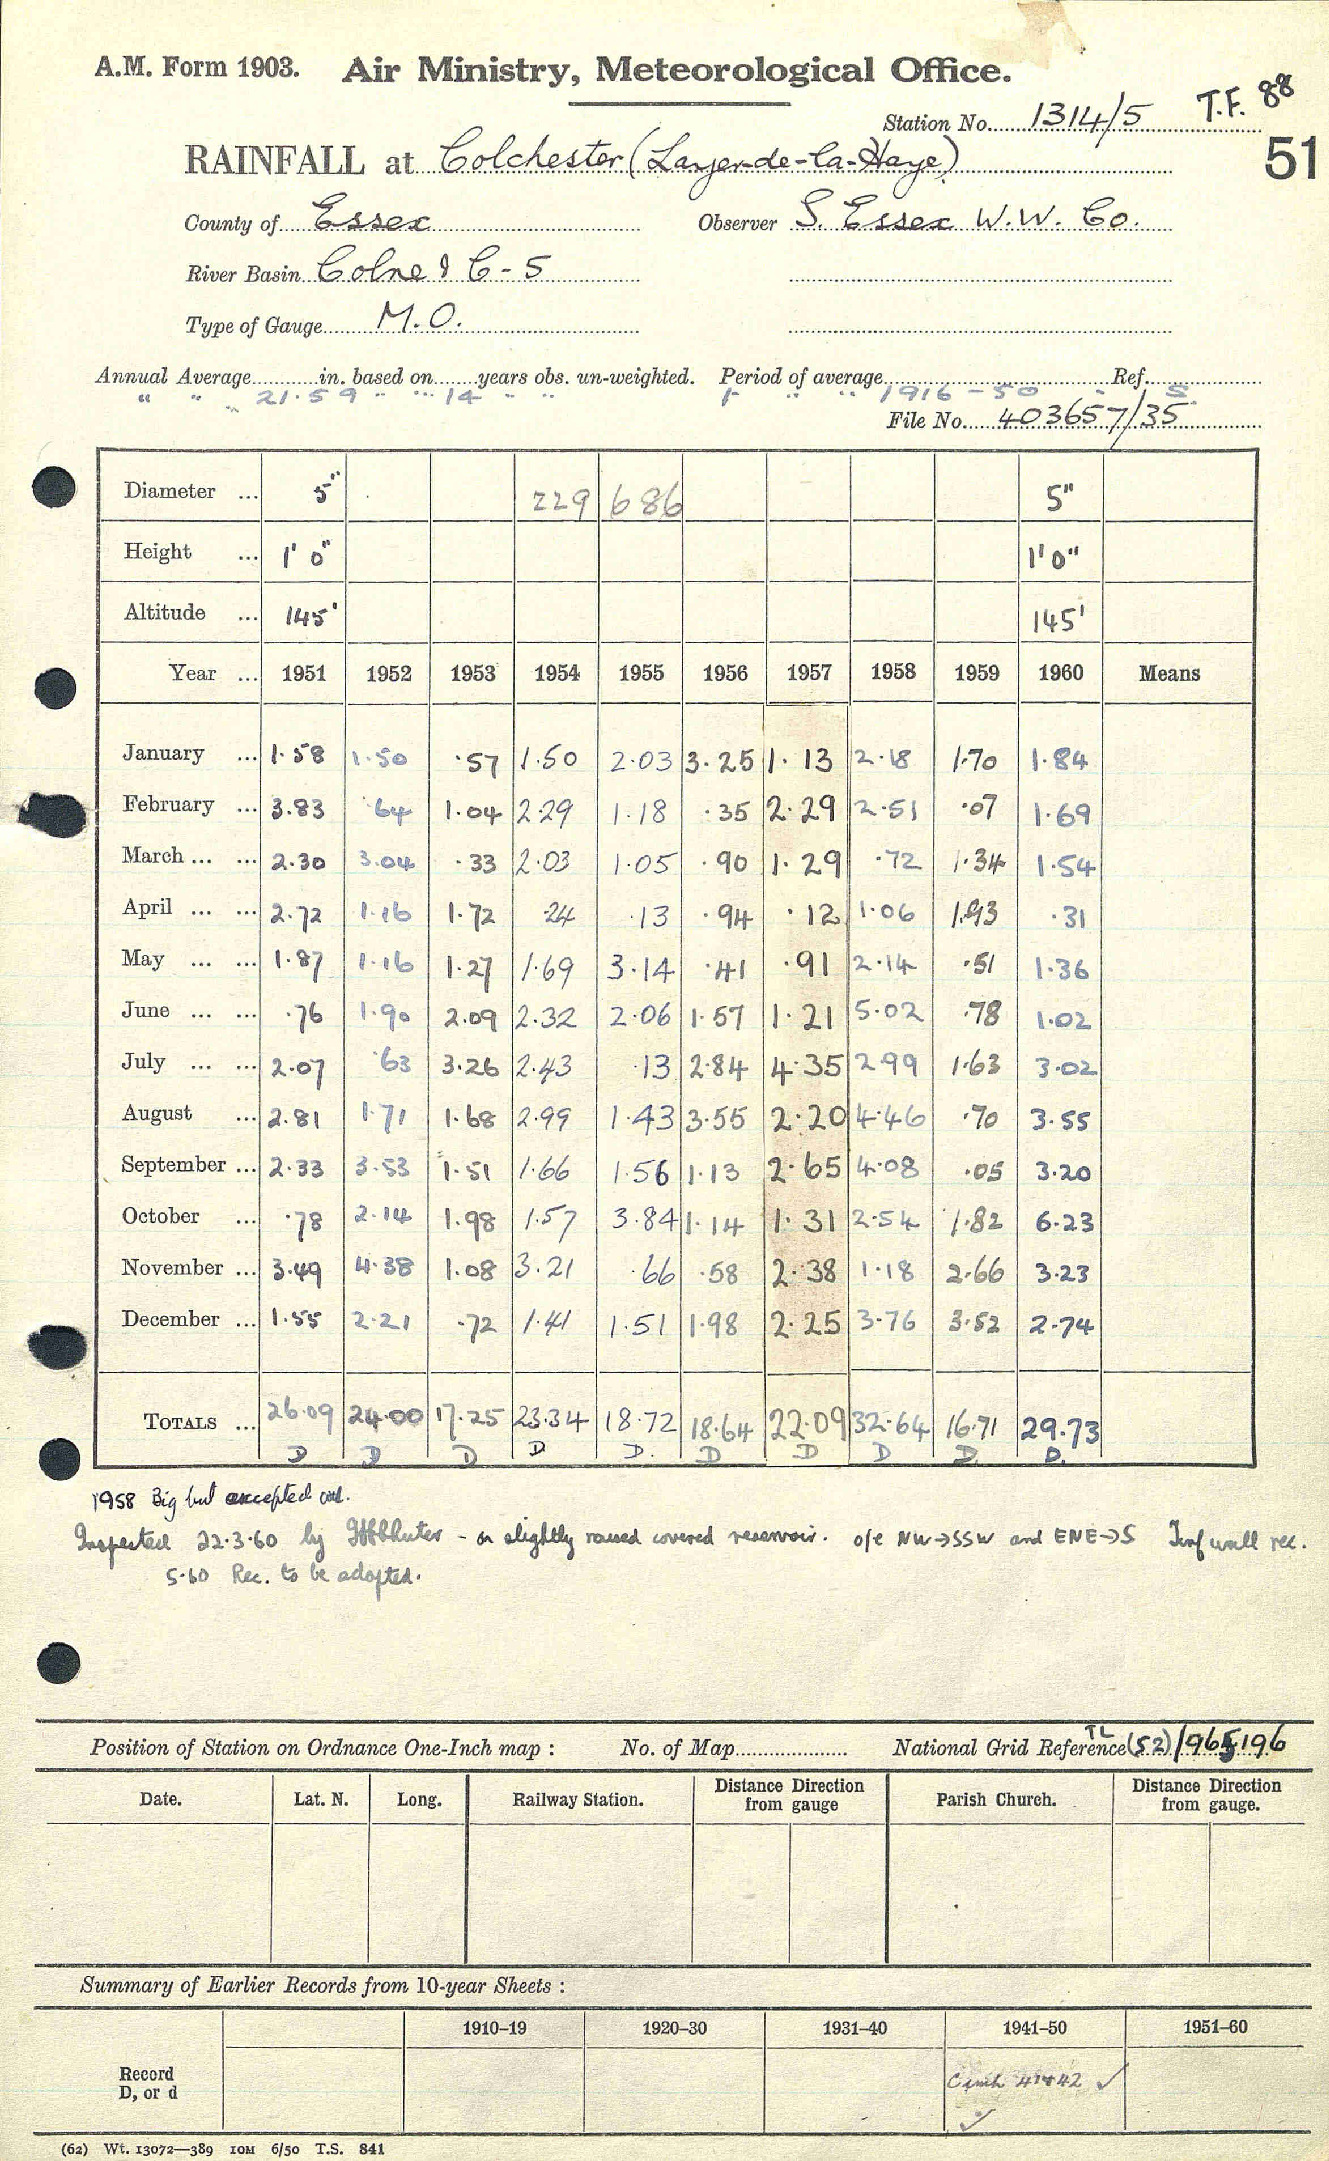 A.M. Form 1903. Air Ministry, Meteorological Office.
T.F. 88
Station No. 1314/5
51
RAINFALL at Colchester (Layer-de-la-Haye)
County of Essex Observer S. Essex W.W. Co.
River Basin Colne & C-5
Type of Gauge M.O.
Annual Average in. based on years obs. un-weighted. Period of average Ref.
" " 21.59 " 14 " " " " 1916-50 S.
File No. 403657/35
Diameter ... 5" 229 686 5"
Height ... 1' 0" 1'0"
Altitude ... 145' 145'
Year ... 1951 1952 1953 1954 1955 1956 1957 1958 1959 1960 Means
January ... 1.58 1.50 .57 1.50 2.03 3.25 1.13 2.18 1.70 1.84
February ... 3.83 .64 1.04 2.29 1.18 .35 2.29 2.51 .07 1.69
March ... ... 2.30 3.04 .33 2.03 1.05 .90 1.29 .72 1.34 1.54
April ... ... 2.72 1.16 1.72 .24 .13 .94 .12 1.06 1.93 .31
May ... ... 1.87 1.16 1.27 1.69 3.14 .41 .91 2.14 .51 1.36
June ... ... .76 1.90 2.09 2.32 2.06 1.57 1.21 5.02 .78 1.02
July ... ... 2.07 .63 3.26 2.43 .13 2.84 4.35 2.99 1.63 3.02
August ... 2.81 1.71 1.68 2.99 1.43 3.55 2.20 4.46 .70 3.55
September ... 2.33 3.53 1.51 1.66 1.56 1.13 2.65 4.08 .05 3.20
October ... .78 2.14 1.98 1.57 3.84 1.14 1.31 2.54 1.82 6.23
November ... 3.49 4.38 1.08 3.21 .66 .58 2.38 1.18 2.66 3.23
December ... 1.55 2.21 .72 1.41 1.51 1.98 2.25 3.76 3.52 2.74
TOTALS ... 26.09 24.00 17.25 23.34 18.72 18.64 22.09 32.64 16.71 29.73
D D D D D. D D D D. D.
1958 Big but accepted
Inspected 22.3.60 by - on slightly raised covered reservoir. o/e NW→SSW and ENE→S Turf wall rec.
5.60 Rec. to be adopted.
Position of Station on Ordnance One-Inch map : No. of Map National Grid Reference TL (52)/965196
Date. Lat. N. Long. Railway Station. Distance from gauge Direction Parish Church. Distance from gauge. Direction
Summary of Earlier Records from 10-year Sheets :
1910-19 1920-30 1931-40 1941-50 1951-60
Record
D, or d
✓
✓
(62) Wt. 13072—389 10M 6/50 T.S. 841